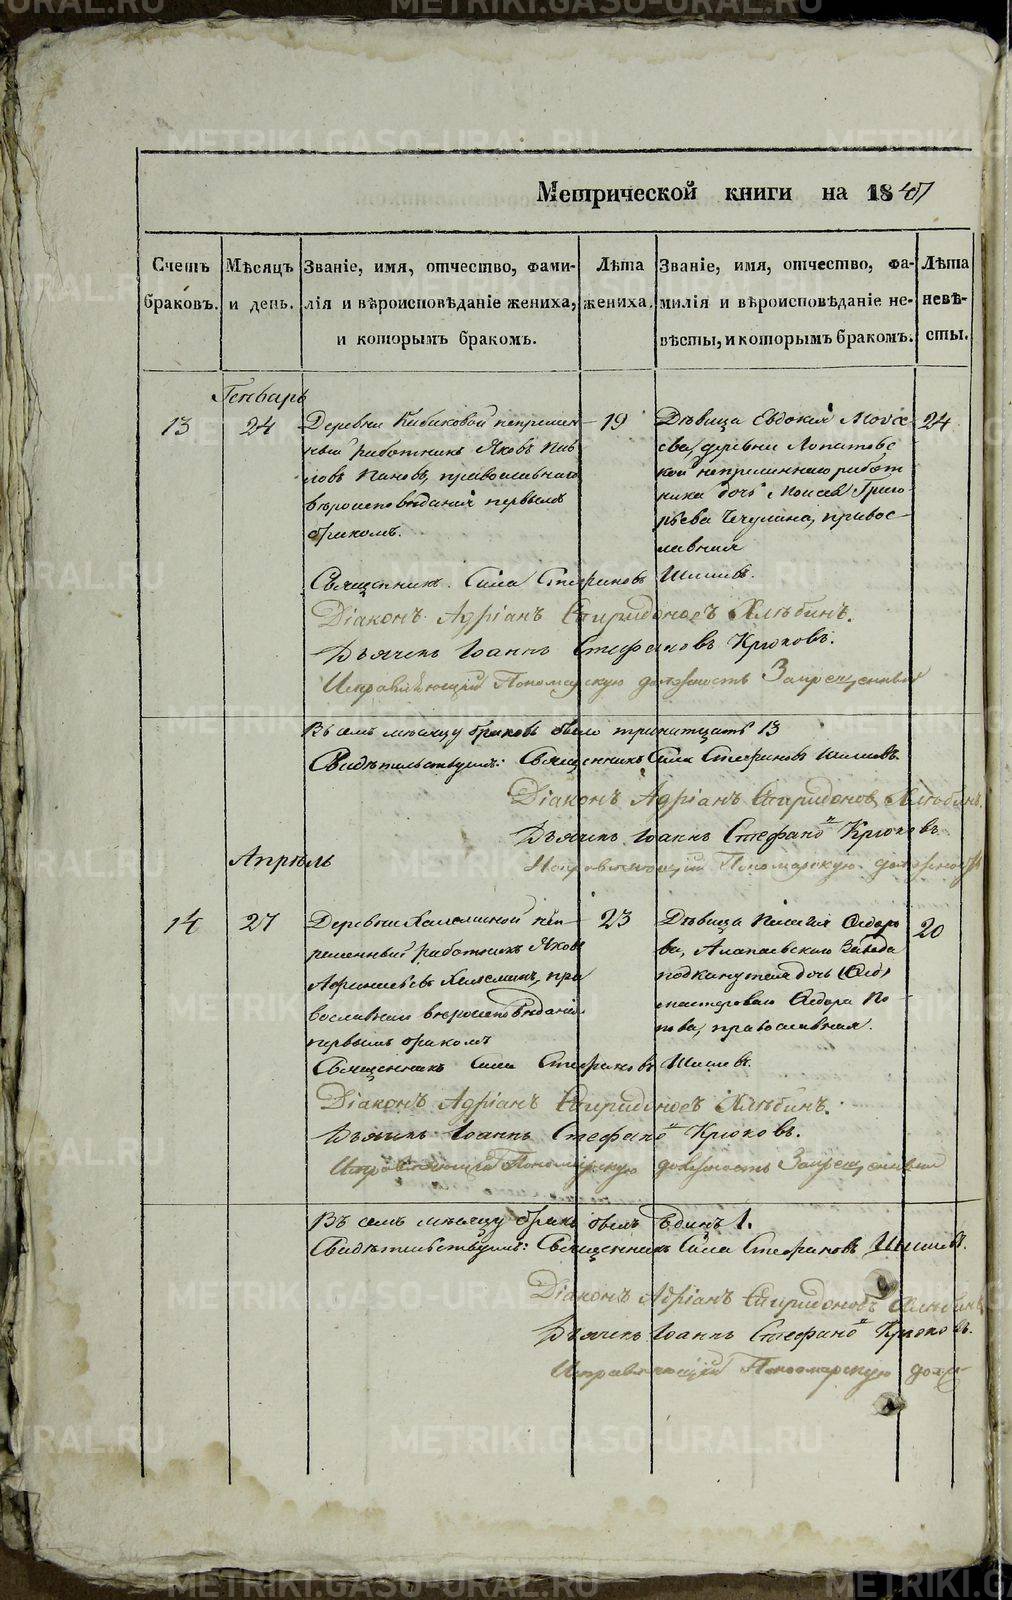 METRIKI.GASO-URAL.RU
Метрической книги на 1847
Счетъ браковъ.
Мѣсяцъ и день.
Званіе, имя, отчество, фами-
лія и вѣроисповѣданіе жениха,
и которымъ бракомъ.
Лѣта жениха.
Званіе, имя, отчество, фа-
милія и вѣроисповѣданіе не-
вѣсты, и которымъ бракомъ.
Лѣта невѣ-
сты.
Генварь
13
24
Деревни непремен
ный работникъ Яковъ Пав
ловъ Пановъ, православнаго
вѣроисповѣданія первымъ
бракомъ.
19
Дѣвица Евдокия Моисе
ева, деревни Лопатовс
кой непременнаго работ
ника дочь Моисея Григо
рьева Чечулина, правос-
лавная
24
Священникъ Сила Стефановъ Шишевъ.
Діаконъ Адріанъ Спиридоновъ Хлѣбинъ.
Дьячекъ Іоаннъ Стефановъ Крюковъ.
Исправляющій Пономарскую должность
Въ семъ мѣсяцу браковъ было тринатцать 13
Свидѣтельствуемъ: Священникъ Сила Стефановъ Шишевъ.
Діаконъ Адріанъ Спиридоновъ Хлѣбинъ.
Дьячекъ Іоаннъ Стефано Крюковъ
Исправляющій Пономарскую должность
Апрѣль
14
27
Деревни неп-
ременный работникъ Яковъ
пра
вославнаго вероисповѣданія
первымъ бракомъ
23
Дѣвица Пелагия Сидоро
ва, Алапаевскаго Завода
дочь
Сидора По
пова, православная.
20
Священникъ Сила Стефановъ Шишевъ.
Діаконъ Адріанъ Спиридоновъ Хлѣбинъ.
Дьячекъ Іоаннъ Стефано Крюковъ.
Исправляющій Пономарскую должность
Въ семъ мѣсяцу бракъ былъ Единъ 1.
Свидѣтельствуемъ: Священникъ Сила Стефановъ Шишевъ.
Діаконъ Адріанъ Спиридоновъ Хлѣбинъ
Дьячекъ Іоаннъ Стефано Крюковъ.
Исправляющій Пономарскую